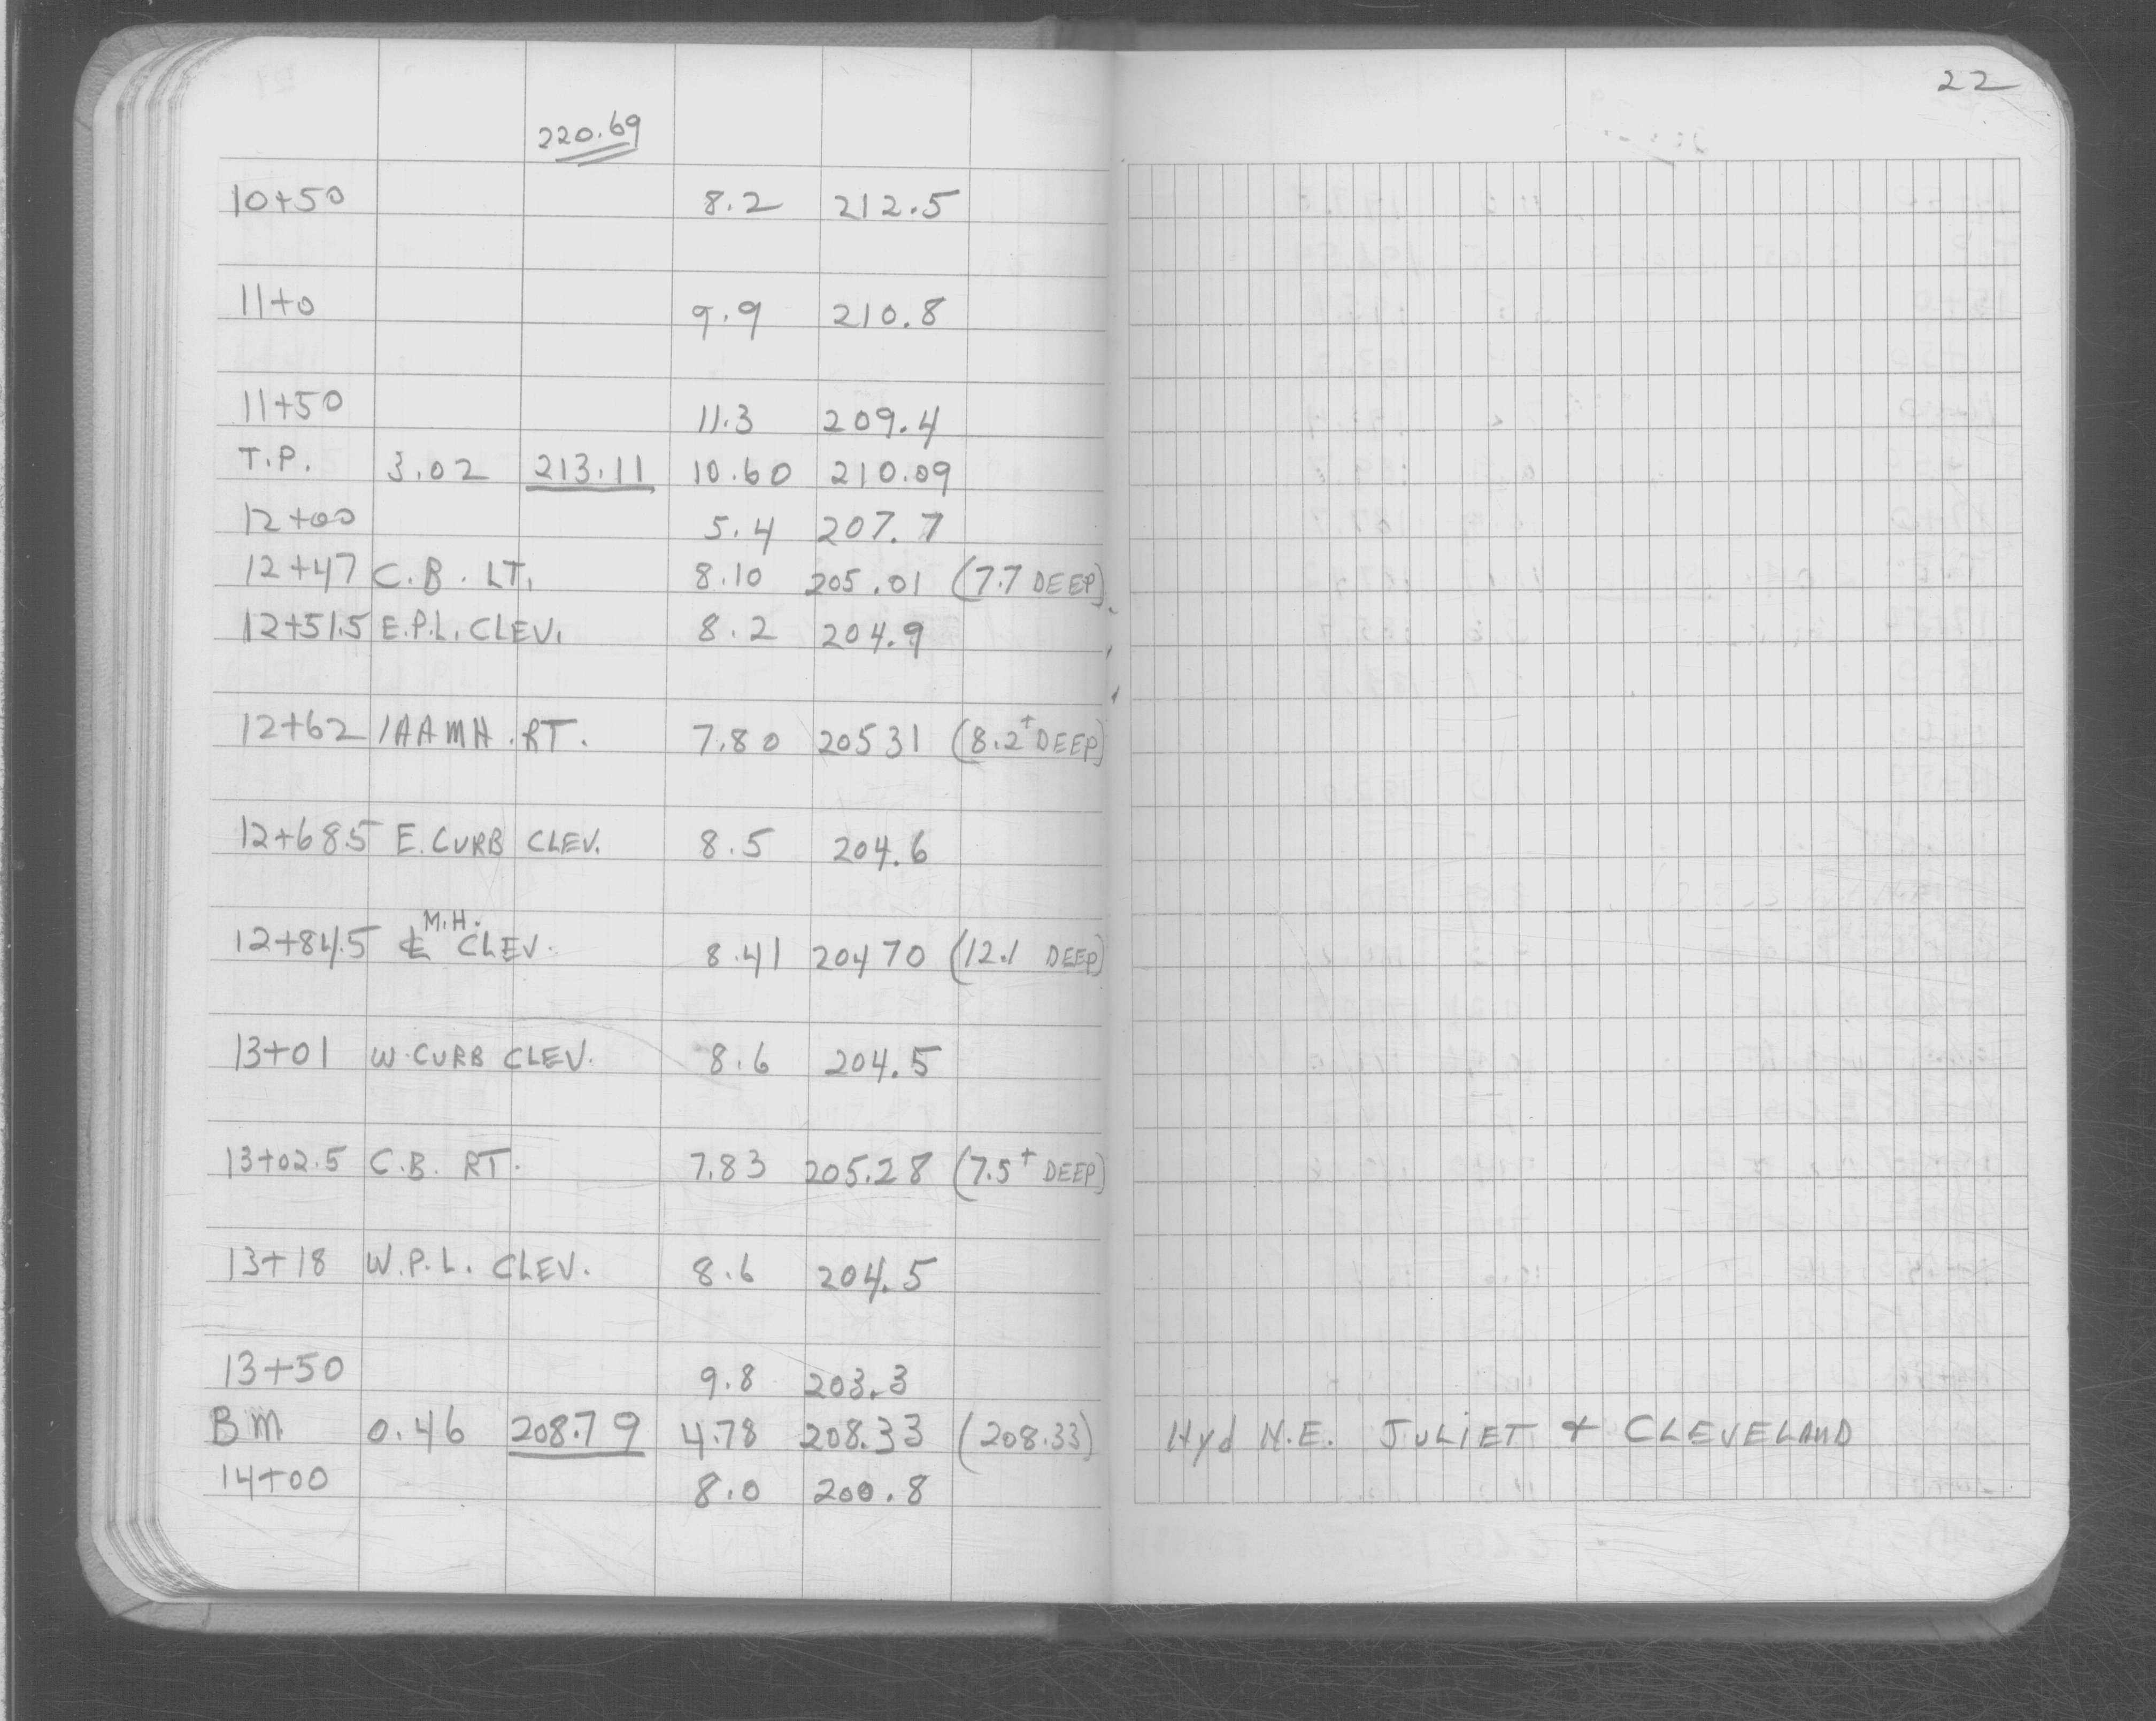 22
220.69
10+50 8.2 212.5
11+0 9.9 210.8
11+50 11.3 209.4
T.P. 3.02 213.11 10.60 210.09
12+00 5.4 207.7
12+47 C.B. LT. 8.10 205.01 (7.7 DEEP)
12+51.5 E.P.L. CLEV. 8.2 204.9
12+62 MH. RT. 7.80 205 31 (8.2+ DEEP)
12+68.5 E. CURB CLEV. 8.5 204.6
M.H.
12+84.5 ℄ CLEV. 8.41 204 70 (12.1 DEEP)
13+01 W. CURB CLEV. 8.6 204.5
13+02.5 C.B. RT. 7.83 205.28 (7.5+ DEEP)
13+18 W.P.L. CLEV. 8.6 204.5
13+50 9.8 203.3
BM 0.46 208.79 4.78 208.33 (208.33) Hyd N.E. JULIET & CLEVELAND
14+00 8.0 200.8